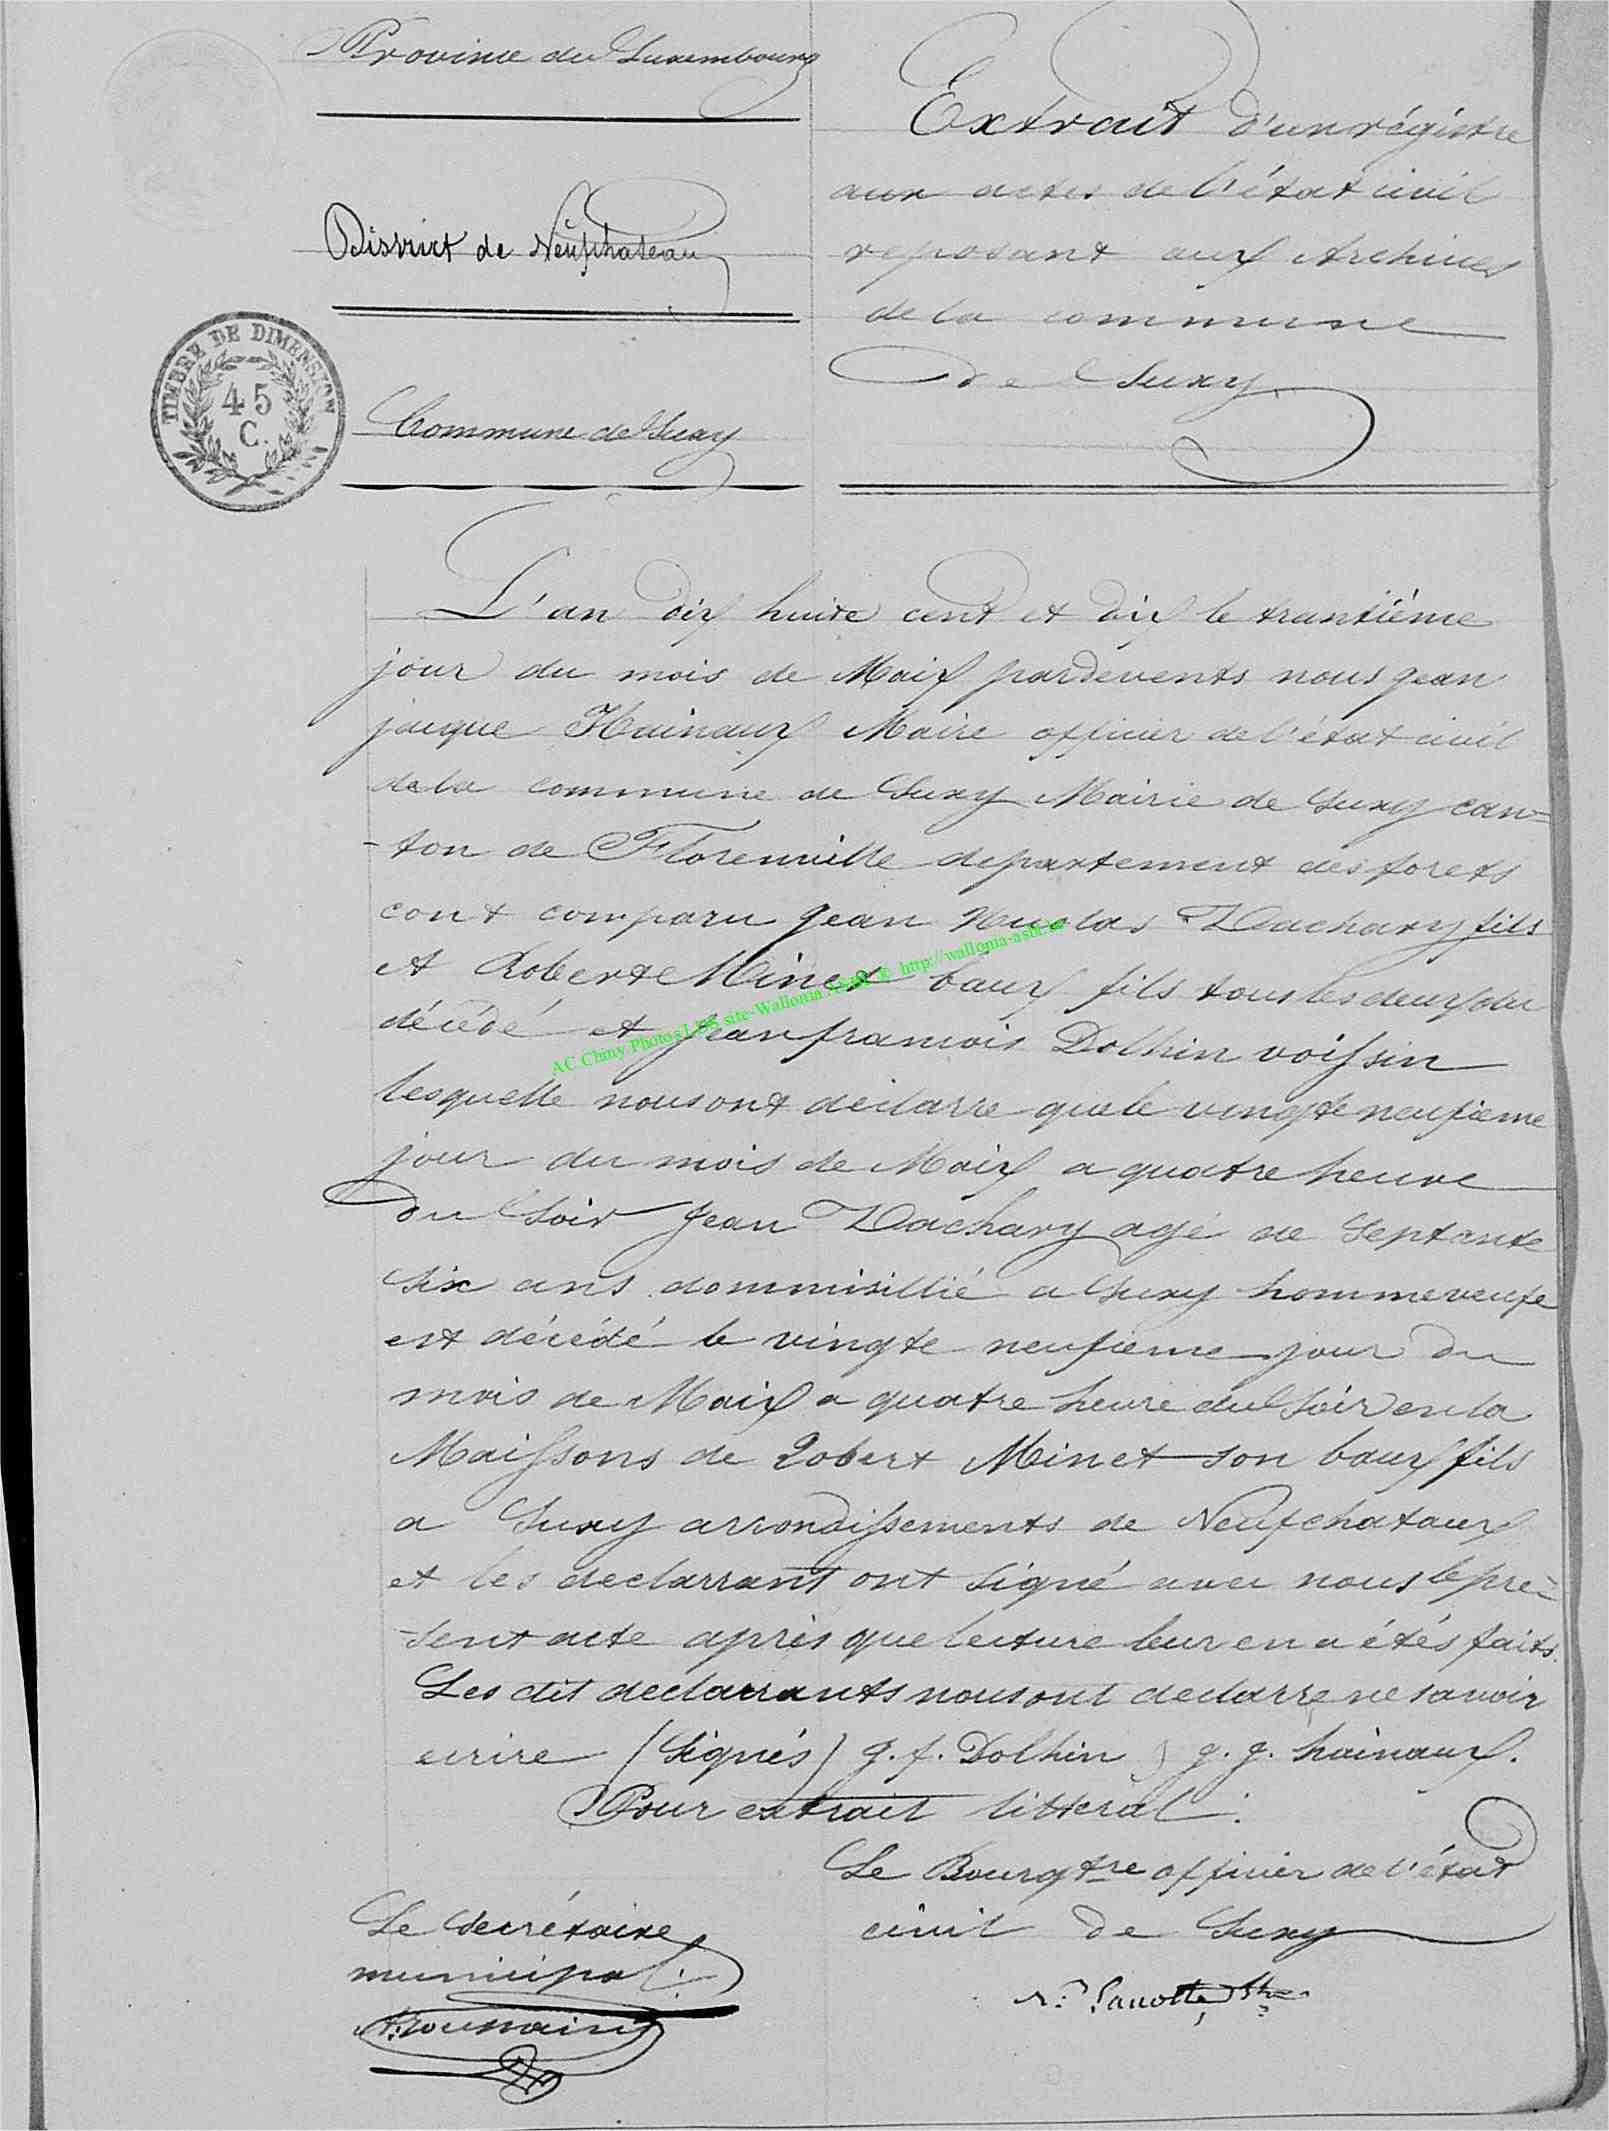 Province du Luxembourg
District de Neufchateau
Commune de Suxy
TIMBRE DE DIMENSION
45
C.
Extrait d'un régistre
aux actes de l'état civil
reposant aux Archives
de la commune
de Suxy
L'an dix huite cent et dix le trantiéme
jour du mois de Maix pardevents nous jean
jacque Hainaux Maire officier de l'état civil
de la commune de Suxy Mairie de Suxy can=
-ton de Florenville departement des forets
cont comparu jean Nicolas Zachary fils
et Roberte Minet baux fils tous les deux du
décédé et jean francois Dolhin voissin
lesquelle nous ont déclarre que le vingte neufieme
jour du mois de Maix a quatre heure
du Soir Jean Zachary agé de Septante
Six ans dommisillié a Suxy homme veufe
est décédé le vingte neufieme jour du
mois de Maix a quatre heure du Soir en la
Maissons de Robert Minet son baux fils
a Suxy arrondissements de Neufchataux
et les declarrant ont Signé avec nous le pré=
-sent acte aprés que lecture leur en a étés faits.
Les dit declarrants nous ont declarre ne savoir
ecrire (Signés) J. f. Dolhin ) J. J. hainaux.
Pour extrait littéral.
Le Bourgtre officier de l'état
civil de Suxy
Le Secrétaire
municipal:
AC Chiny Photos LDS site-Wallonia ASBL © http://wallonia-asbl.be